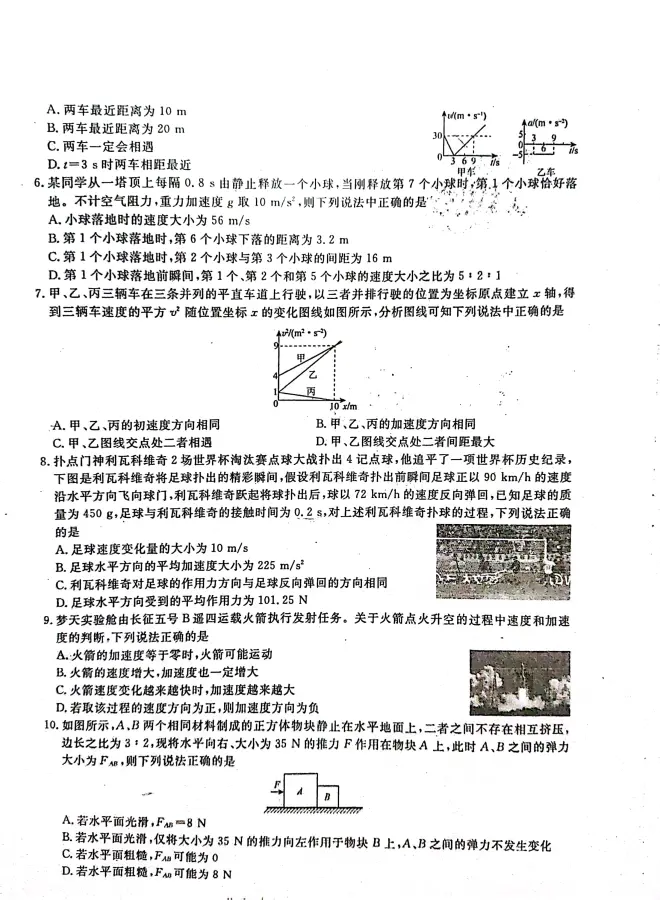 A. 两车最近距离为 10 m
B. 两车最近距离为 20 m
C. 两车一定会相遇
D. t=3 s 时两车相距最近
v/(m·s⁻¹)
30
0
3 6 9
t/s
甲车
a/(m·s⁻²)
5
0
-5
3 9
6
t/s
乙车
6. 某同学从一塔顶上每隔 0.8 s 由静止释放一个小球,当刚释放第 7 个小球时,第 1 个小球恰好落
地。不计空气阻力,重力加速度 g 取 10 m/s²,则下列说法中正确的是
A. 小球落地时的速度大小为 56 m/s
B. 第 1 个小球落地时,第 6 个小球下落的距离为 3.2 m
C. 第 1 个小球落地时,第 2 个小球与第 3 个小球的间距为 16 m
D. 第 1 个小球落地前瞬间,第 1 个、第 2 个和第 5 个小球的速度大小之比为 5∶2∶1
7. 甲、乙、丙三辆车在三条并列的平直车道上行驶,以三者并排行驶的位置为坐标原点建立 x 轴,得
到三辆车速度的平方 v² 随位置坐标 x 的变化图线如图所示,分析图线可知下列说法中正确的是
v²/(m²·s⁻²)
9
4
1
0
甲
乙
丙
10 x/m
A. 甲、乙、丙的初速度方向相同
B. 甲、乙、丙的加速度方向相同
C. 甲、乙图线交点处二者相遇
D. 甲、乙图线交点处二者间距最大
8. 扑点门神利瓦科维奇 2 场世界杯淘汰赛点球大战扑出 4 记点球,他追平了一项世界杯历史纪录,
下图是利瓦科维奇将足球扑出的精彩瞬间,假设利瓦科维奇扑出前瞬间足球正以 90 km/h 的速度
沿水平方向飞向球门,利瓦科维奇跃起将球扑出后,球以 72 km/h 的速度反向弹回,已知足球的质
量为 450 g,足球与利瓦科维奇的接触时间为 0.2 s,对上述利瓦科维奇扑球的过程,下列说法正确
的是
A. 足球速度变化量的大小为 10 m/s
B. 足球水平方向的平均加速度大小为 225 m/s²
C. 利瓦科维奇对足球的作用力方向与足球反向弹回的方向相同
D. 足球水平方向受到的平均作用力为 101.25 N
9. 梦天实验舱由长征五号 B 遥四运载火箭执行发射任务。关于火箭点火升空的过程中速度和加速
度的判断,下列说法正确的是
A. 火箭的加速度等于零时,火箭可能运动
B. 火箭的速度增大,加速度也一定增大
C. 火箭速度变化越来越快时,加速度越来越大
D. 若取该过程的速度方向为正,则加速度方向为负
10. 如图所示,A、B 两个相同材料制成的正方体物块静止在水平地面上,二者之间不存在相互挤压,
边长之比为 3∶2,现将水平向右、大小为 35 N 的推力 F 作用在物块 A 上,此时 A、B 之间的弹力
大小为 F_AB,则下列说法正确的是
F
A
B
A. 若水平面光滑,F_AB=8 N
B. 若水平面光滑,仅将大小为 35 N 的推力向左作用于物块 B 上,A、B 之间的弹力不发生变化
C. 若水平面粗糙,F_AB 可能为 0
D. 若水平面粗糙,F_AB 可能为 8 N